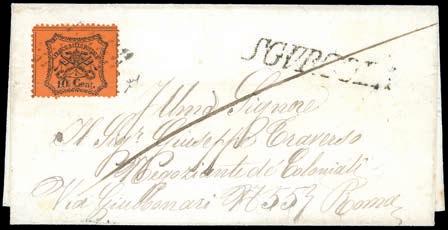 10 Cent.
SGURGOLA
Illmo Signore
Il Sigr Giuseppe Traverso
Negoziante di Coloniali
Via Giubbonari N 55 Roma